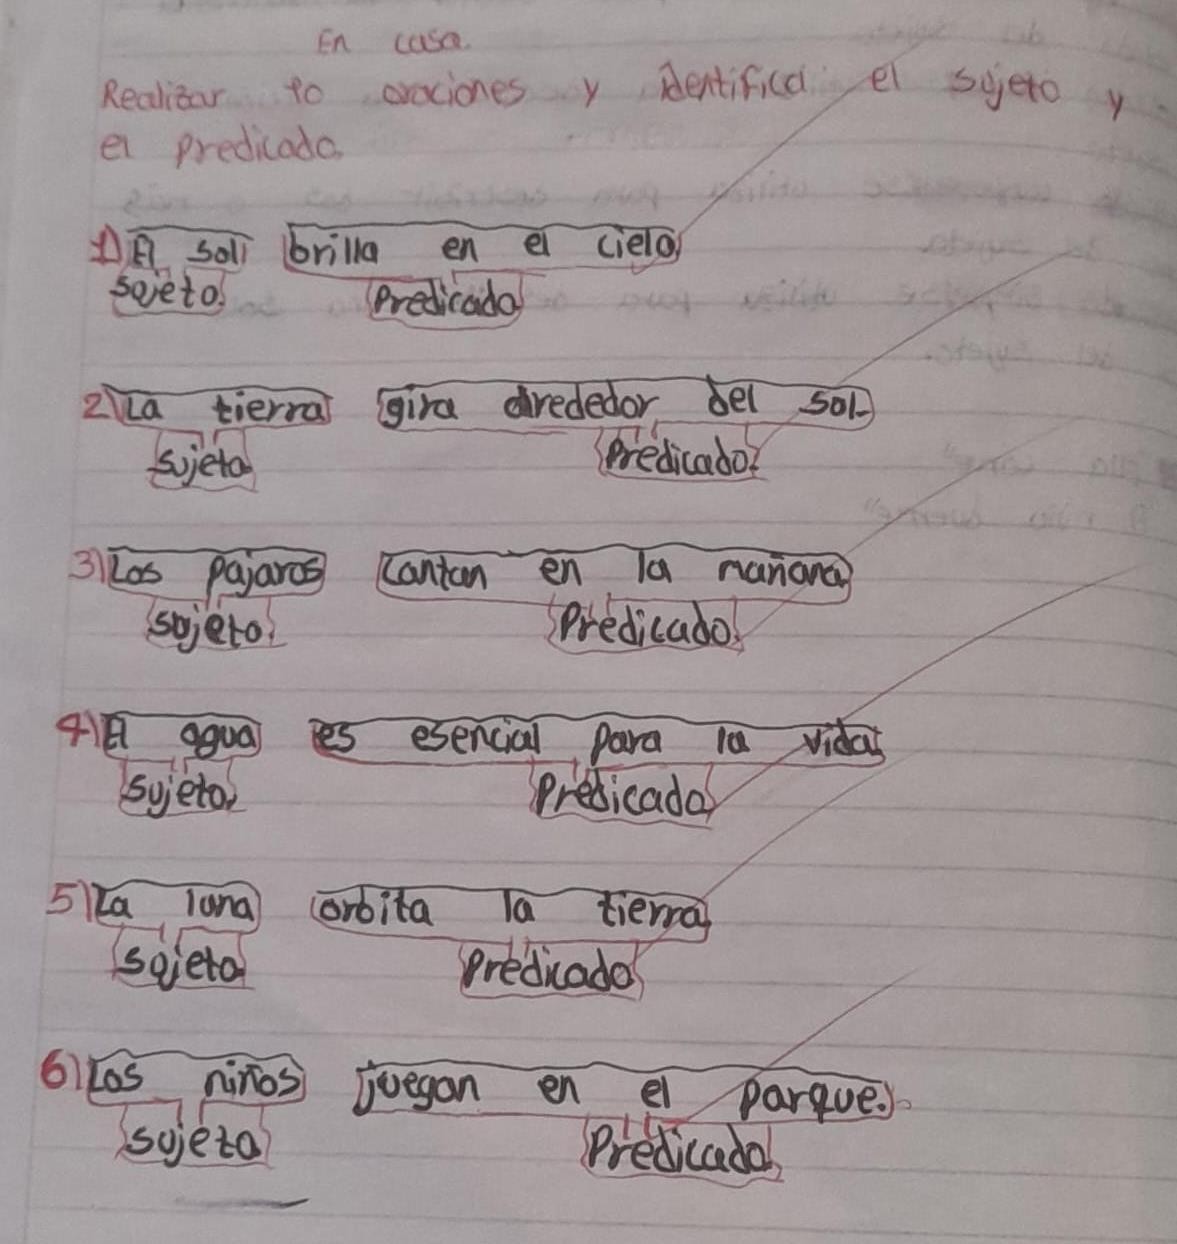 En casa.
Realizar 10 oraciones y identifica el sujeto y
el predicado.
1) El sol brilla en el cielo
sujeto. Predicado
2) La tierra gira alrededor del sol.
sujeto Predicado.
3) Los pajaros cantan en la mañana
sujeto. Predicado.
4) El agua es esencial para la vida
sujeto. Predicado
5) La luna orbita la tierra
sujeto Predicado
6) Los niños juegan en el parque.
sujeto Predicado